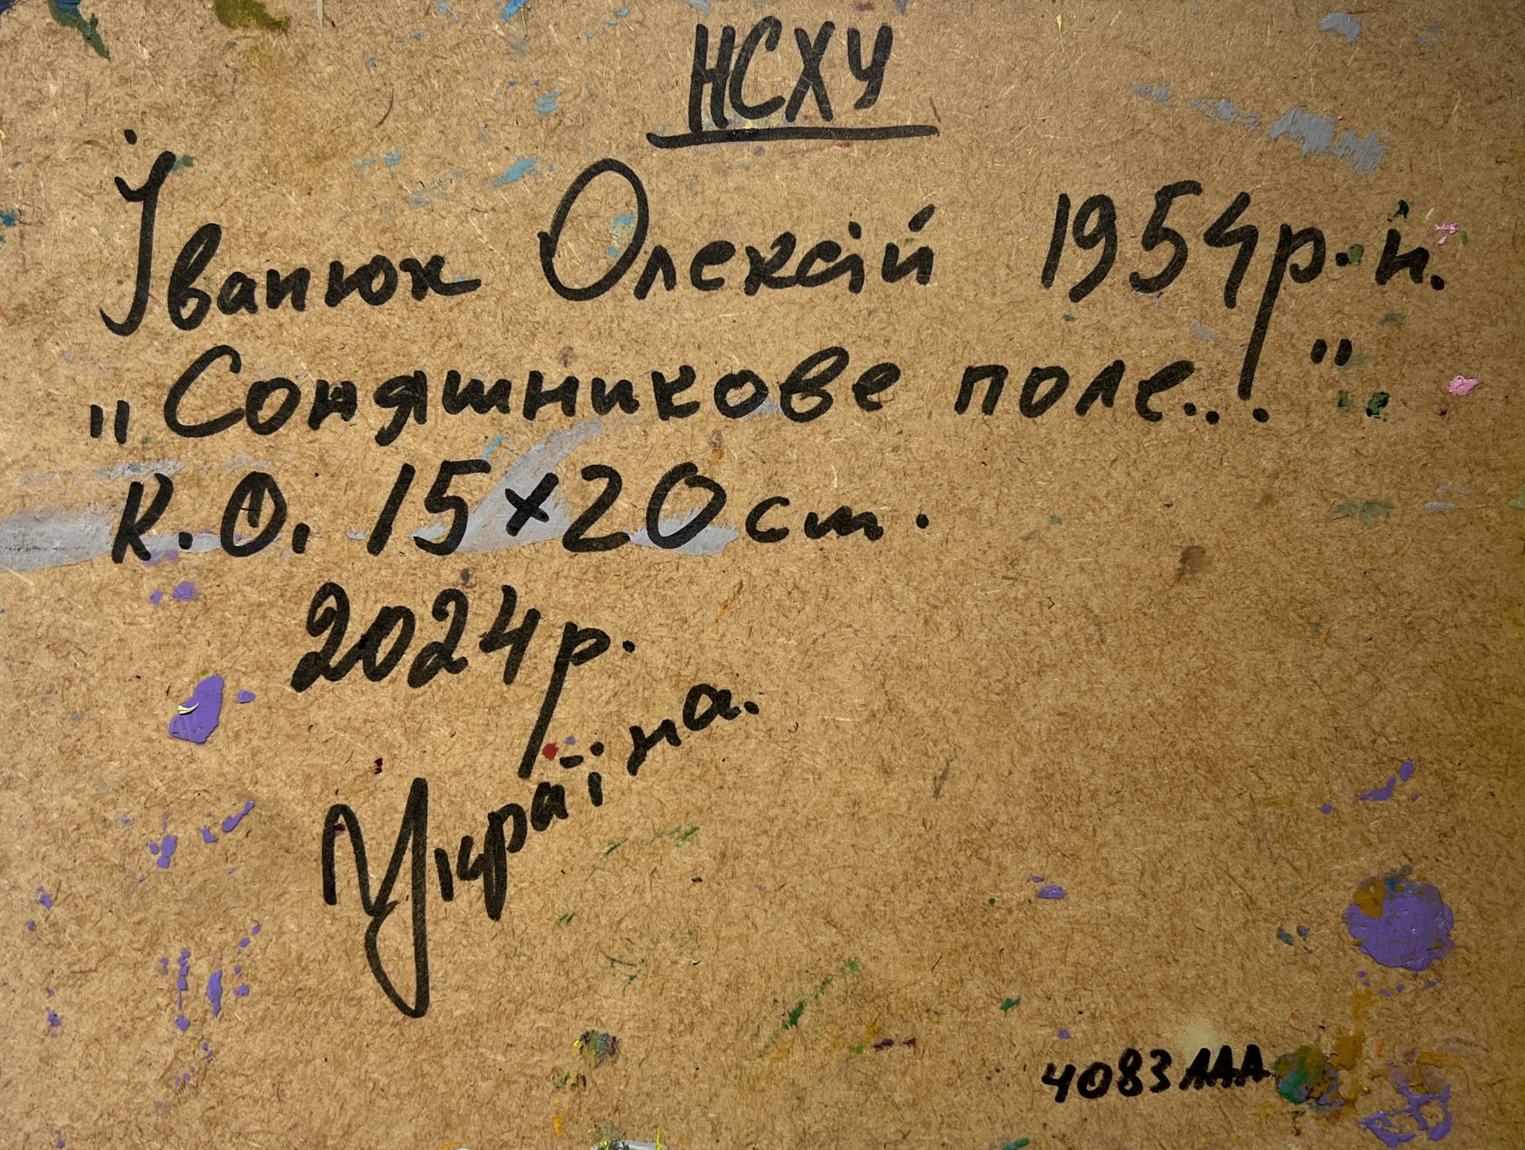 НСХУ
Іванюк Олексій 1954р.н.
„Соняшникове поле..."
к.о. 15×20см.
2024р.
Україна.
4083ААА